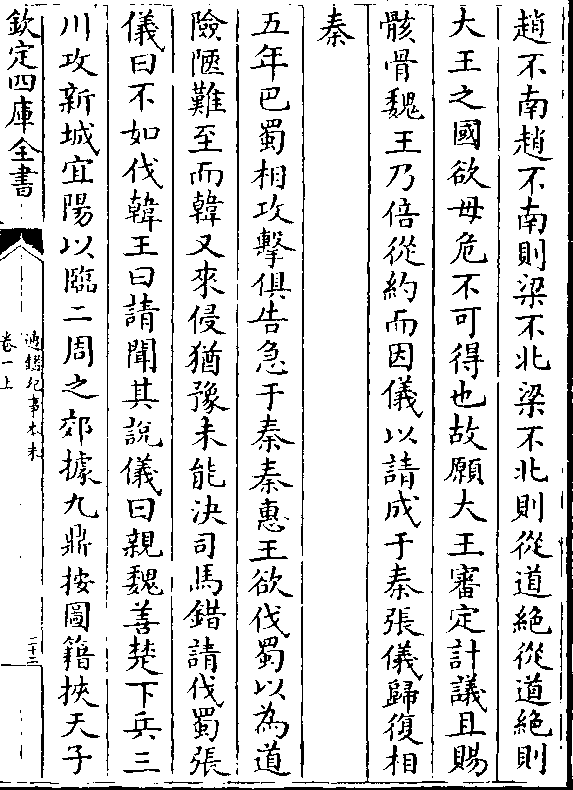 趙不南趙不南則梁不北梁不北則從道絶從道絶則
大王之國欲毋危不可得也故願大王審定計議且賜
骸骨魏王乃倍從約而因儀以請成于秦張儀歸復相
秦
五年巴蜀相攻擊俱告急于秦秦惠王欲伐蜀以為道
險陿難至而韓又來侵猶豫未能決司馬錯請伐蜀張
儀曰不如伐韓王曰請聞其說儀曰親魏善楚下兵三
川攻新城宜陽以臨二周之郊據九鼎按圖籍挾天子
欽定四庫全書
通鑑紀事本末
卷一上
二十二